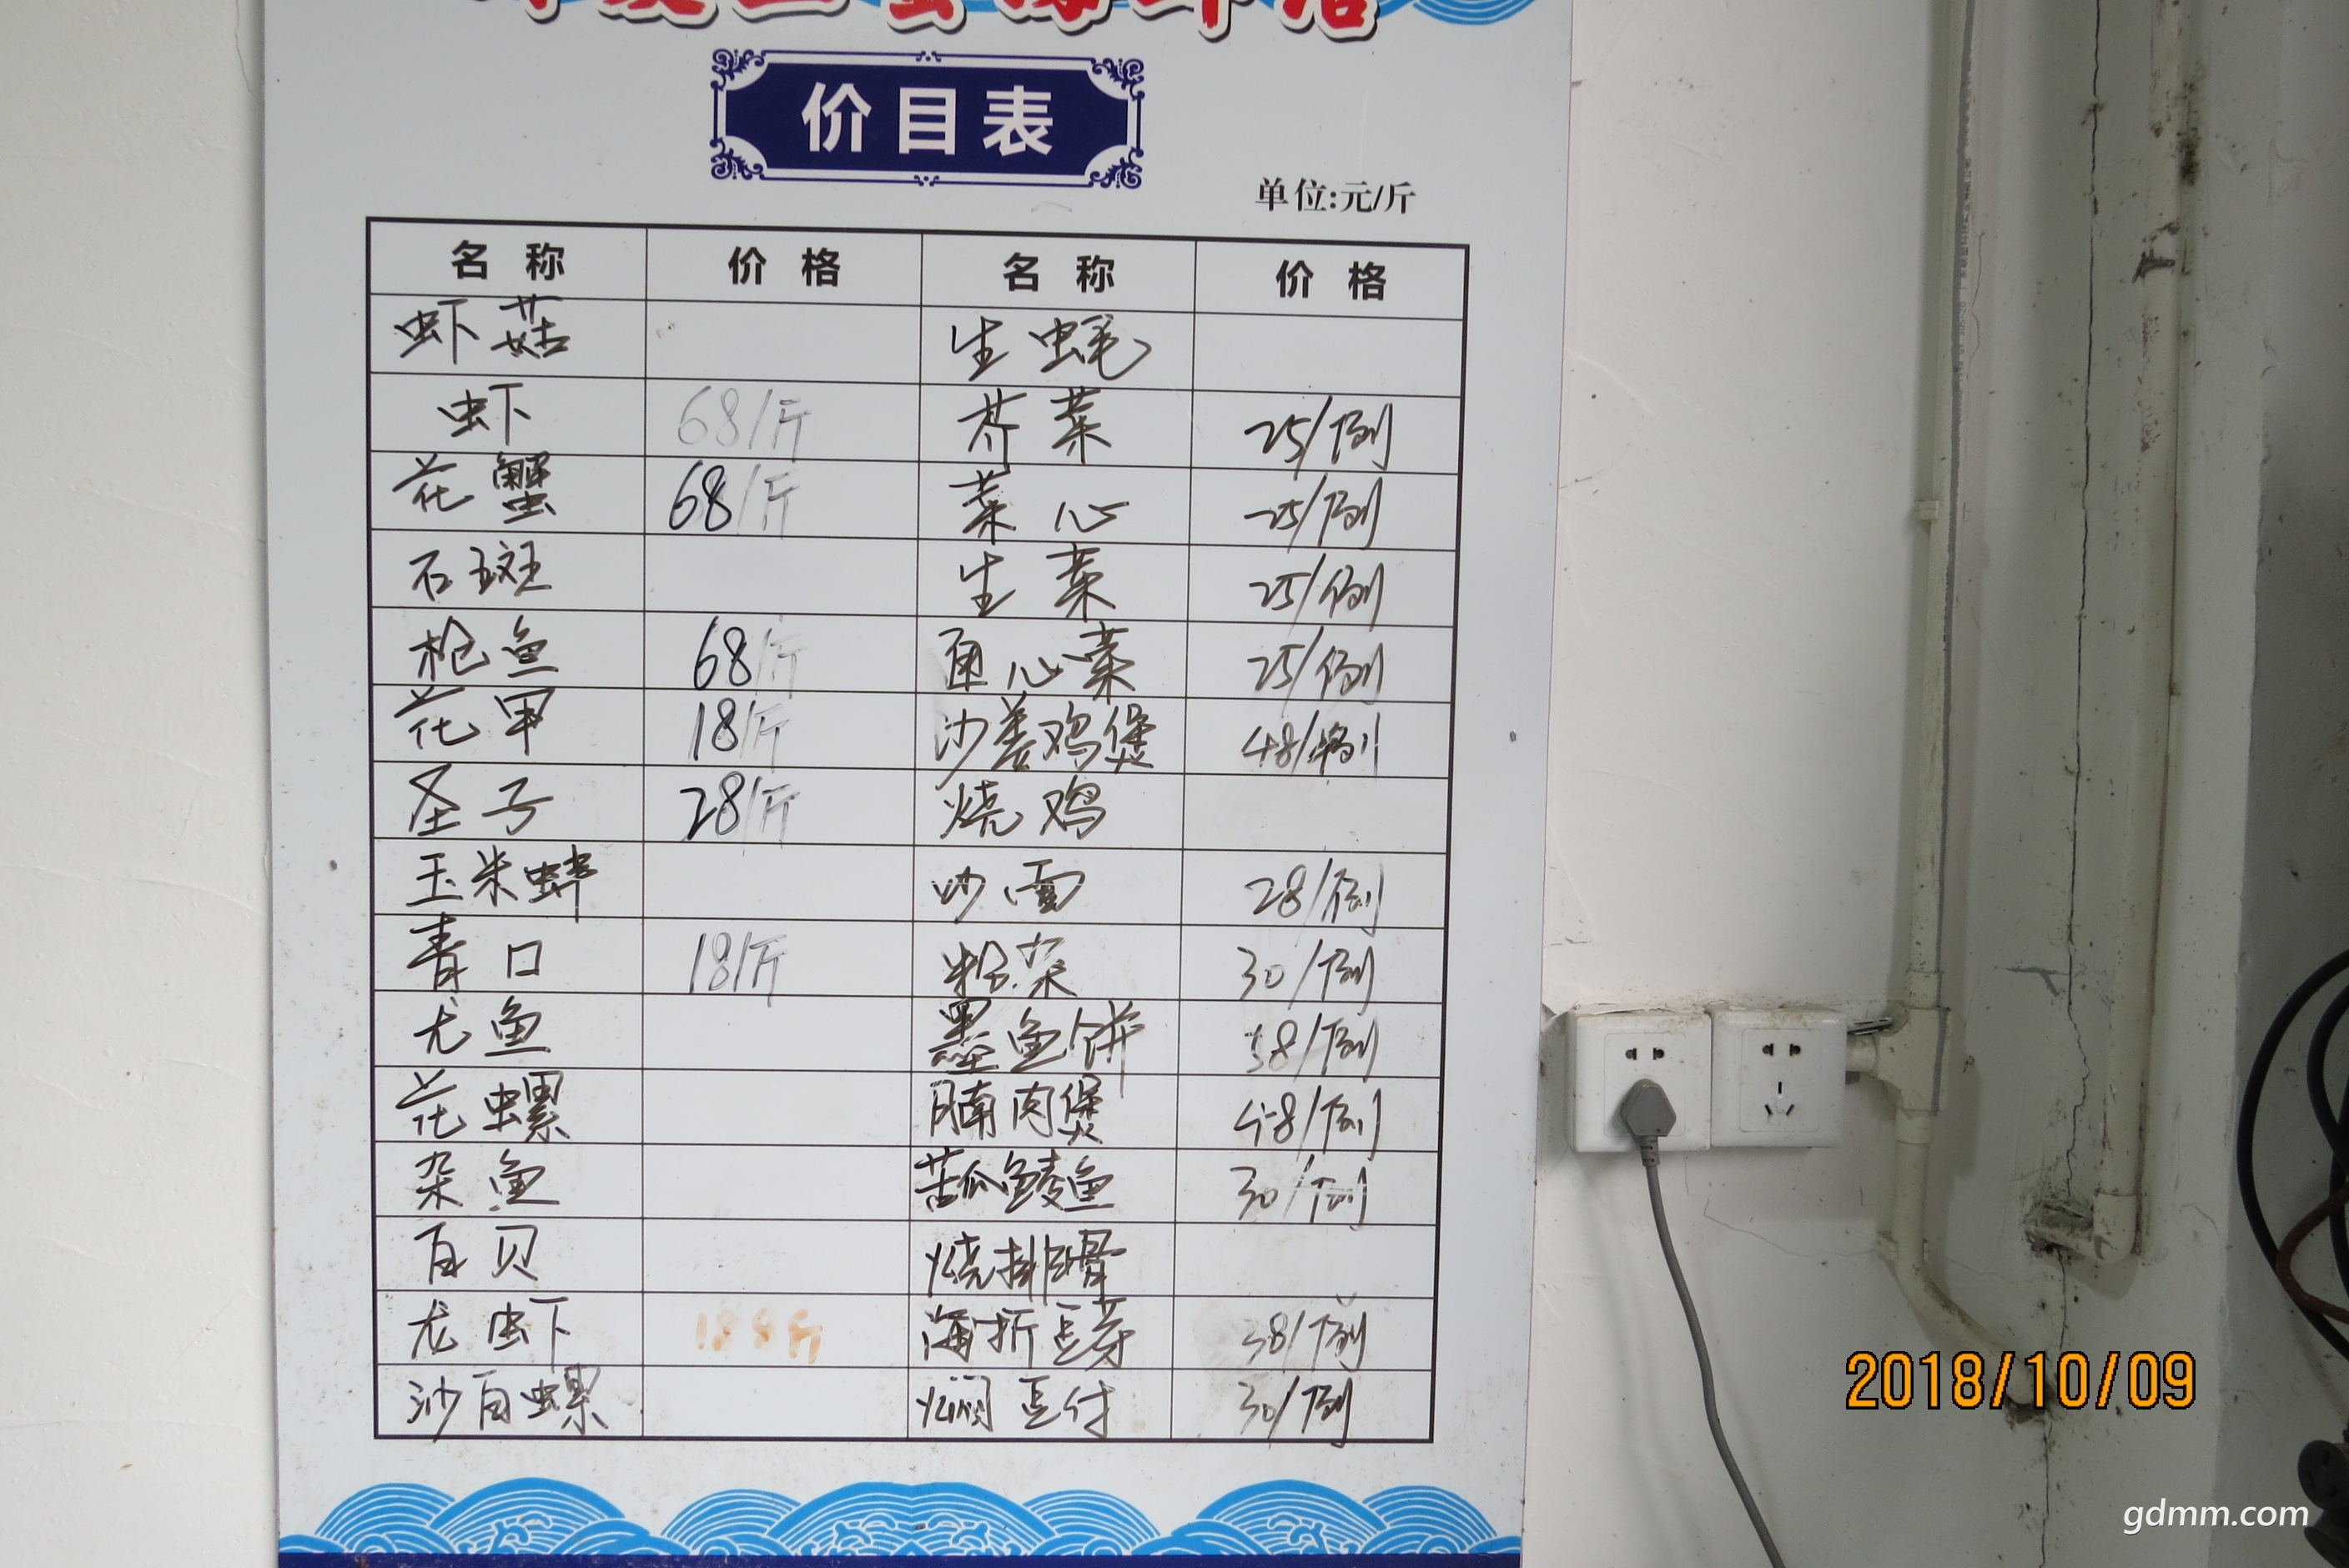 价目表
单位:元/斤
名称 价格 名称 价格
虾菇 生蚝
虾 68/斤 芥菜 25/例
花蟹 68/斤 菜心 25/例
石斑 生菜 25/例
枪鱼 68/斤 通心菜 25/例
花甲 18/斤 沙姜鸡煲 48/例
圣子 28/斤 烧鸡
玉米蚌 炒面 28/例
青口 18/斤 粉菜 30/例
尤鱼 墨鱼饼 38/例
花螺 腩肉煲 48/例
杂鱼 苦瓜鲮鱼 30/例
白贝 烧排骨
龙虾 188斤 海折豆芽 38/例
沙白螺 焖豆付 30/例
2018/10/09
gdmm.com